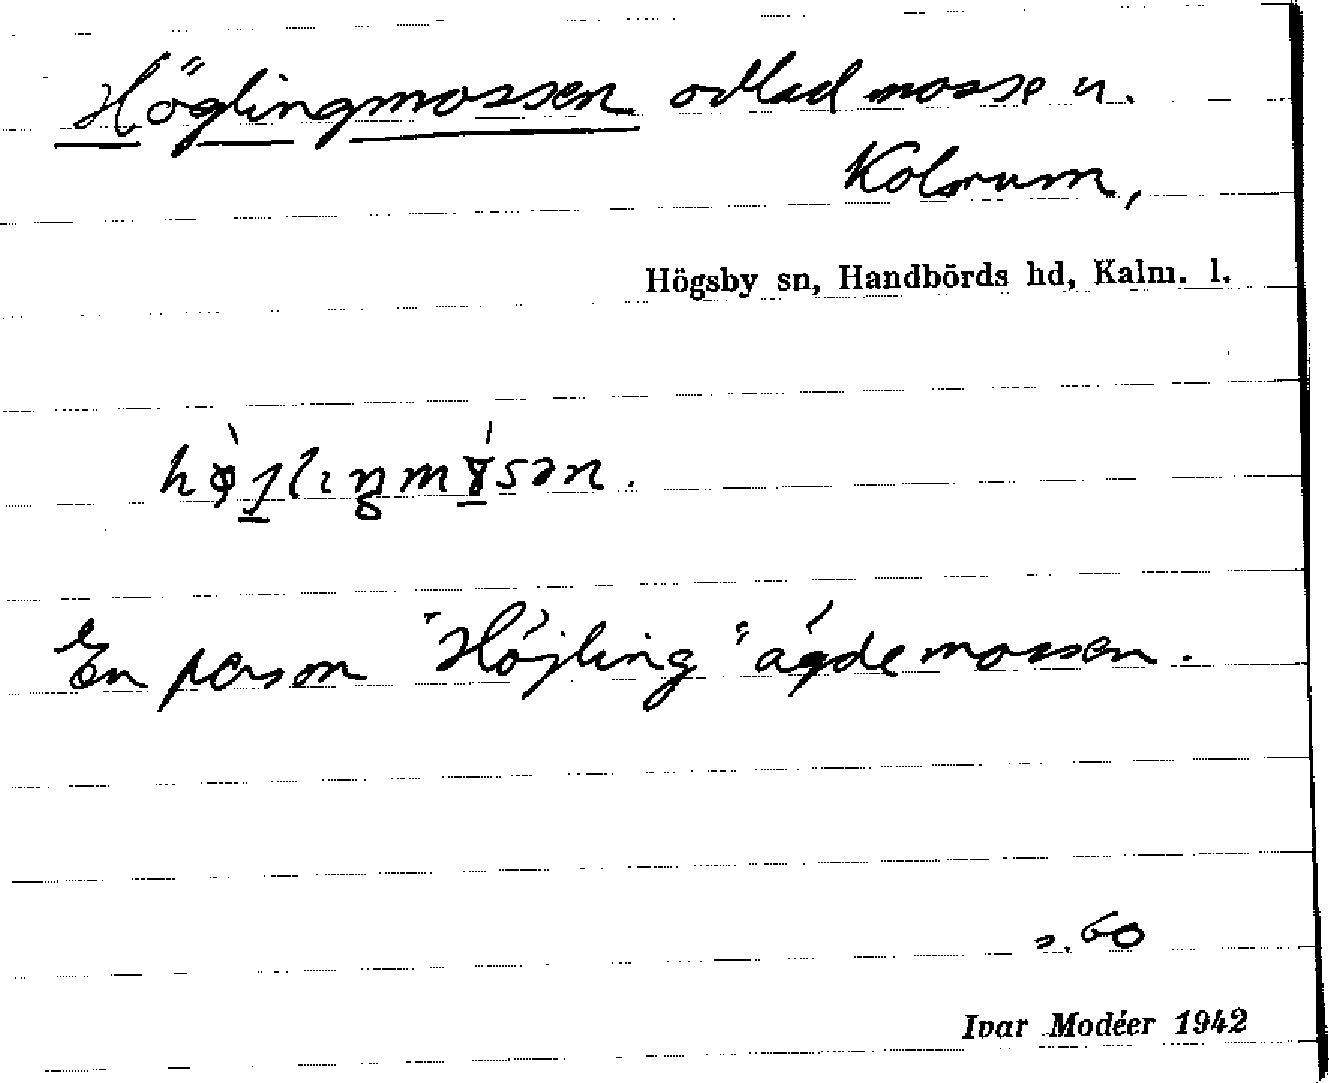 Höglingmossen odlad mosse u.
Kolsrum,
Högsby sn, Handbörds hd, Kalm. l.
En person "Höjling" ägde mossen.
s. 60
Ivar Modéer 1942